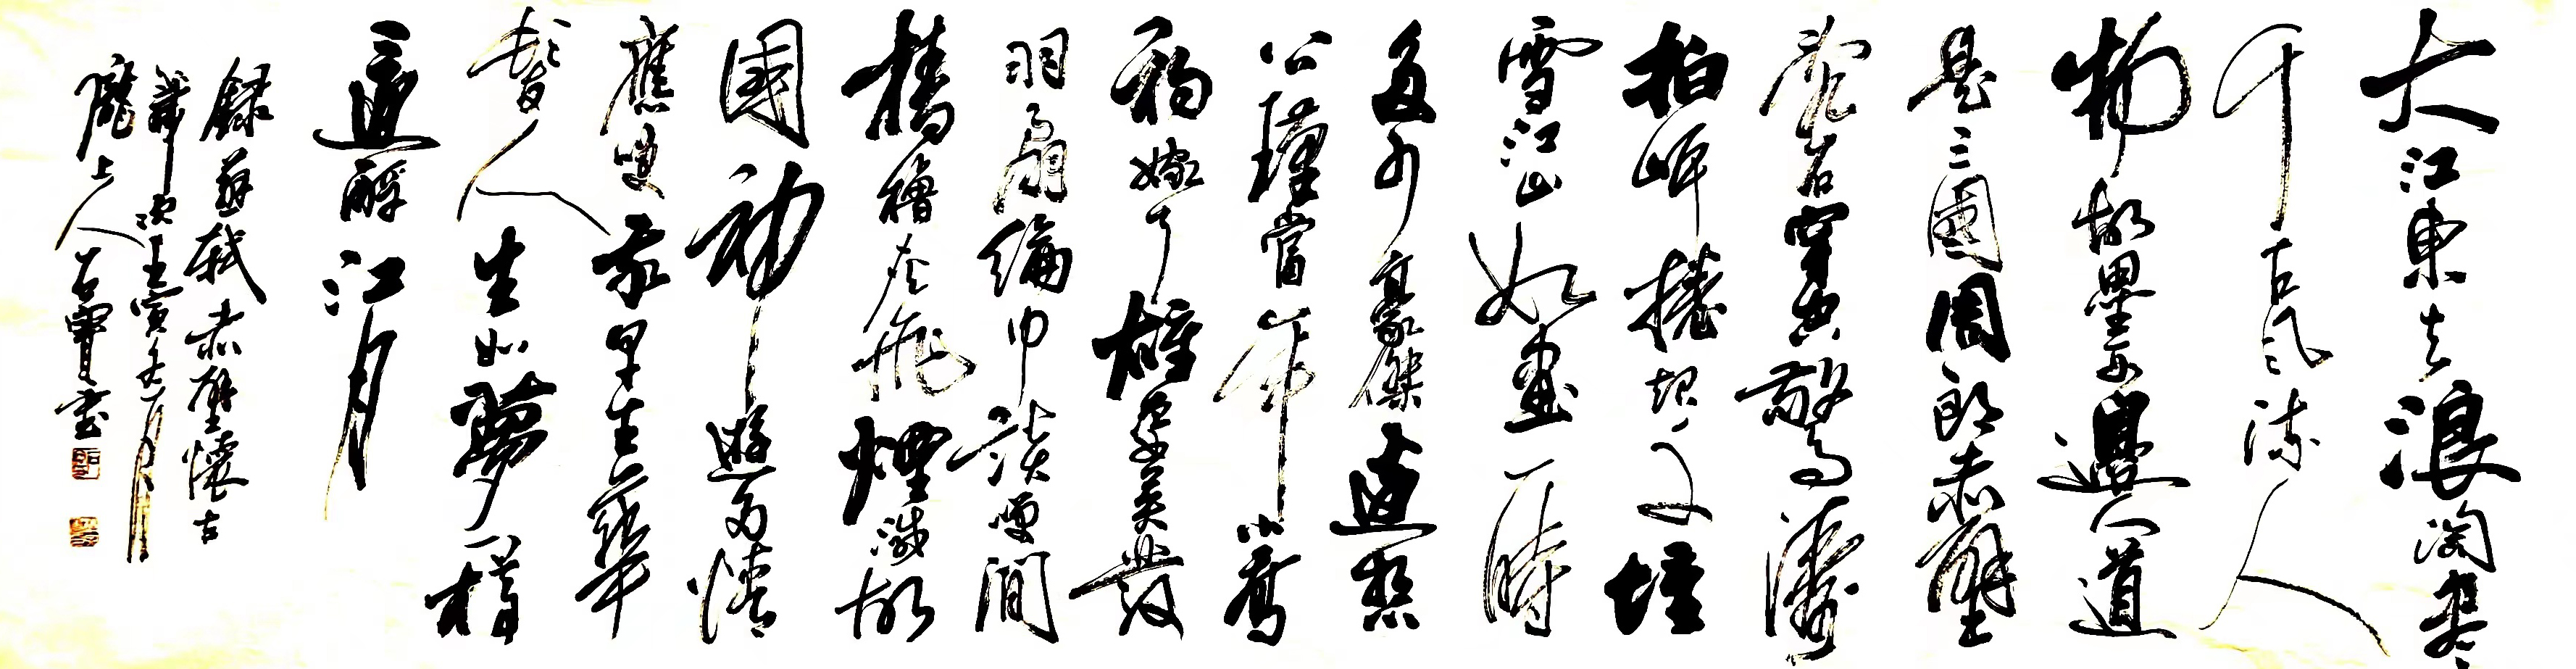 大江東去浪淘盡
千古風流人
物故壘西邊人道
是三國周郎赤壁
亂石穿空驚濤
拍岸捲起千堆
雪江山如畫一時
多少豪傑遙想
公瑾當年小喬
初嫁了雄姿英發
羽扇綸巾談笑間
檣櫓灰飛煙滅故
國神遊多情
應笑我早生華
髮人生如夢一樽
還酹江月
錄蘇軾赤壁懷古
次壬寅月
隴上人書